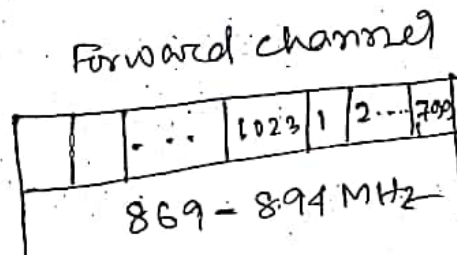 Forward channel
... 1023 1 2.... 799
869 - 894 MHz